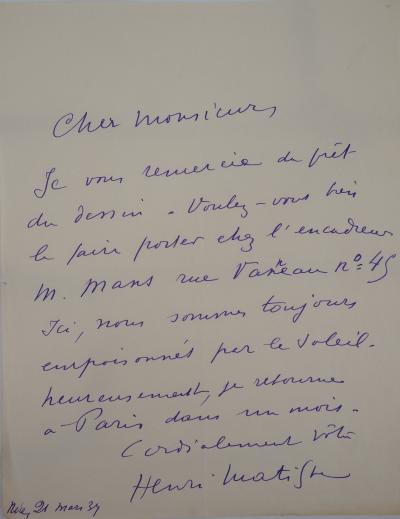 Cher Monsieur,
Je vous remercie du prêt
du dessin - Voulez-vous bien
le faire porter chez l'encadreur
M. Mans rue Vanneau nº 45
Ici, nous sommes toujours
empoisonnés par le soleil.
heureusement, je retourne
à Paris dans un mois.
Cordialement vôtre
Henri Matisse
Nice, 21 mars 39